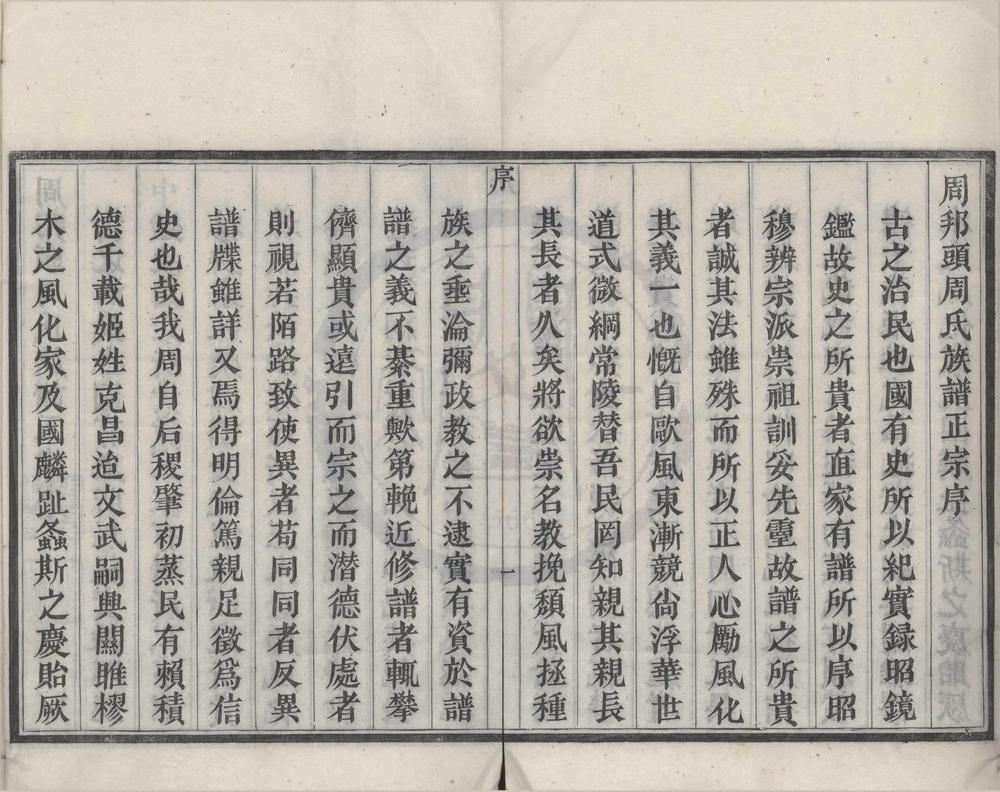 周邦頭周氏族譜正宗序
古之治民也國有史所以紀實録昭鏡
鑑故史之所貴者直家有譜所以序昭
穆辨宗派崇祖訓妥先靈故譜之所貴
者誠其法雖殊而所以正人心勵風化
其義一也慨自歐風東漸競尙浮華世
道式微綱常陵替吾民罔知親其親長
其長者久矣將欲崇名教挽頽風拯種
序
一
族之垂淪彌政教之不逮實有資於譜
譜之義不綦重歟第輓近修譜者輒攀
儕顯貴或遠引而宗之而潛德伏處者
則視若陌路致使異者苟同同者反異
譜牒雖詳又焉得明倫篤親足徵爲信
史也哉我周自后稷肇初蒸民有賴積
德千載姬姓克昌迨文武嗣興關雎樛
木之風化家及國麟趾螽斯之慶貽厥